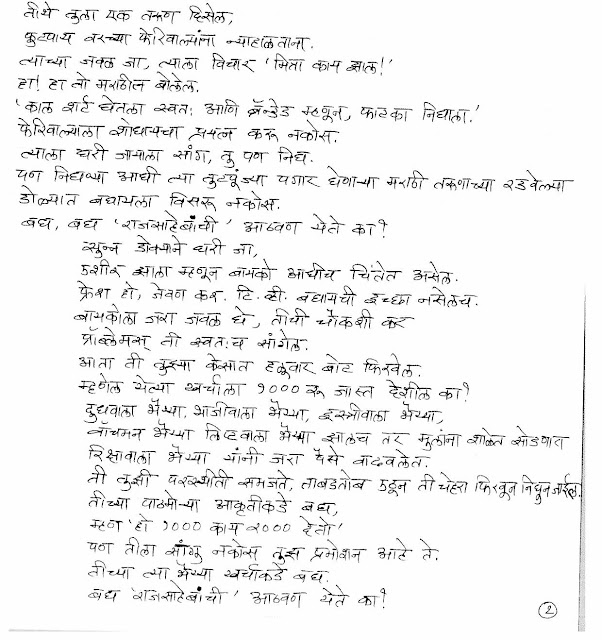 तीथे तुला एक तरूण दिसेल,
फुटपाथ वरच्या फेरिवाल्यांना न्याहाळताना.
त्याच्या जवळ जा, त्याला विचार 'मिता काय झालं!'
हा! हा तो मराठीत बोलेल.
'काल शर्ट घेतला स्वतः आणि ब्रॅन्डेड म्हणून, फाटका निघाला.'
फेरिवाल्याला शोधायचा प्रयत्न करू नकोस.
त्याला घरी जायला सांग, तु पण निघ.
पण निघण्या आधी त्या तुटपूंज्या पगार घेणाऱ्या मराठी तरूणाच्या रडवेल्या
डोळ्यात बघायला विसरू नकोस.
बघ, बघ 'राजसाहेबांची' आठवण येते का?
सुन्न डोक्याने घरी जा,
उशीर झाला म्हणून बायको आधीच चिंतेत असेल.
फ्रेश हो, जेवण कर. टि. व्ही. बघायची इच्छा नसेलच.
बायकोला जरा जवळ घे, तीची चौकशी कर
प्रॉब्लेमस् ती स्वतःच सांगेल.
आता ती तुझ्या केसात हळूवार बोट फिरवेल.
म्हणेल येत्या खर्चाला १००० रू जास्त देशील का?
दुधवाला भैय्या, भाजीवाला भैय्या, इस्त्रीवाला भैय्या,
वॉचमन भैय्या लिफ्टवाला भैय्या झालंच तर मुलांना शाळेत सोडणारा
रिक्षावाला भैय्या यांनी जरा पैसे वाढवलेत.
ती तुझी परस्थीती समजते, ताबडतोब उठून ती चेहरा फिरवून निघून जाईल.
तीच्या पाठमोऱ्या आकृतीकडे बघ,
म्हण 'हो १००० काय २००० देतो'
पण तीला सांगू नकोस तुझं प्रमोशन आहे ते.
तीच्या त्या भैय्या खर्चाकडे बघ.
बघ 'राजसाहेबांची' आठवण येते का?
२